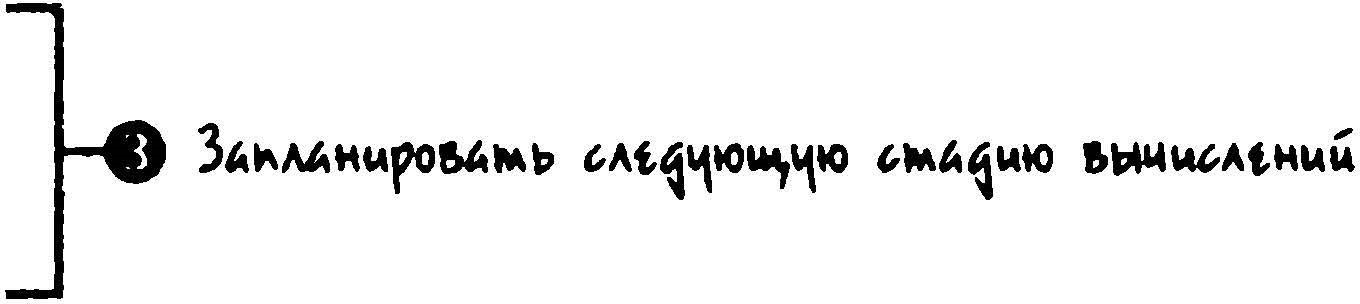 3 Запланировать следующую стадию вычислений